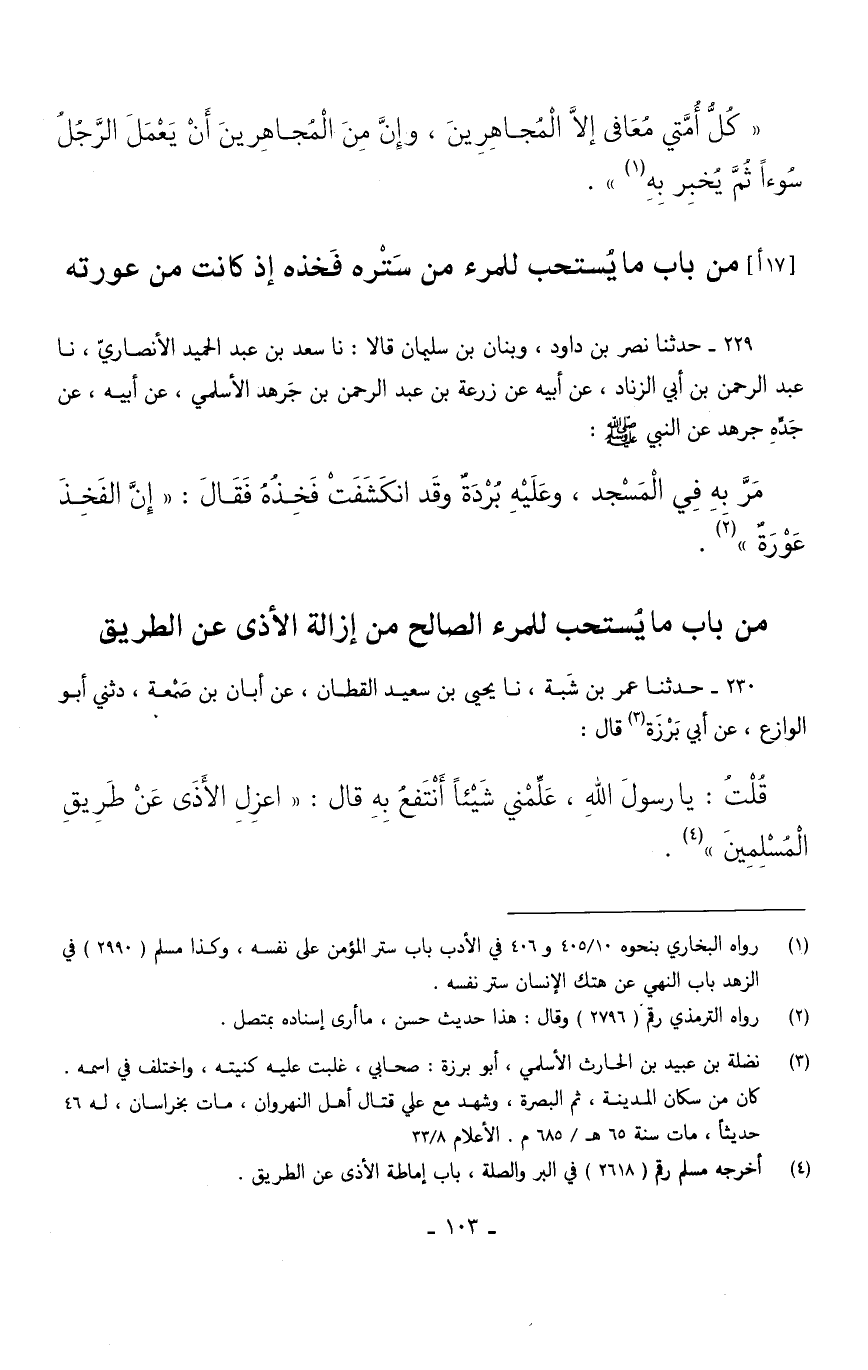 « كُلُّ أُمَّتي مُعَافى إلاَّ الْمُجـاهِرِينَ ، وإنَّ مِنَ الْمُجـاهِرينَ أَنْ يَعْمَلَ الرَّجُلُ
سُوءاً ثُمَّ يُخبِر بِهِ(١) » .
[١٧أ] من باب ما يُستحب للمرء من سَتْره فَخذه إذ كانت من عورته
٢٢٩ ـ حدثنا نصر بن داود ، وبنان بن سليمان قالا : نا سعد بن عبد الحميد الأنصاريّ ، نـا
عبد الرحمن بن أبي الزناد ، عن أبيه عن زرعة بن عبد الرحمن بن جَرهد الأسلمي ، عن أبيـه ، عن
جَدِّهِ جرهد عن النبي ﷺ :
مَرَّ بِهِ فِي الْمَسْجد ، وعَلَيْهِ بُرْدَةٌ وقَد انكَشَفَتْ فَخِـذُهُ فَقَـالَ : « إنَّ الفَخِـذَ
عَوْرَةٌ »(٢) .
من باب ما يُستحب للمرء الصالح من إزالة الأذى عن الطريق
٢٣٠ ـ حـدثنـا عمر بن شَبـة ، نـا يحيى بن سعيـد القطـان ، عن أبـان بن صَمْعـة ، دثني أبـو
الوازع ، عن أبي بَرْزَة(٣) قال :
قُلْتُ : يا رسولَ اللهِ ، عَلِّمْني شَيْئاً أَنْتَفعُ بِهِ قال : « اعزِلِ الأَذَى عَنْ طَرِيقِ
الْمُسْلِمِينَ »(٤) .
(١) رواه البخاري بنحوه ٤٠٥/١٠ و ٤٠٦ في الأدب باب ستر المؤمن على نفسـه ، وكـذا مسلم ( ٢٩٩٠ ) في
الزهد باب النهي عن هتك الإنسان ستر نفسه .
(٢) رواه الترمذي رقم ( ٢٧٩٦ ) وقال : هذا حديث حسن ، ماأرى إسناده بمتصل .
(٣) نضلة بن عبيد بن الحارث الأسلمي ، أبو برزة : صحابي ، غلبت عليـه كنيتـه ، واختلف في اسمـه .
كان من سكان المدينـة ، ثم البصرة ، وشهـد مع علي قتـال أهـل النهروان ، مـات بخراسـان ، لـه ٤٦
حديثاً ، مات سنة ٦٥ هـ / ٦٨٥ م . الأعلام ٣٣/٨
(٤) أخرجه مسلم رقم ( ٢٦١٨ ) في البر والصلة ، باب إماطة الأذى عن الطريق .
ـ ١٠٣ ـ